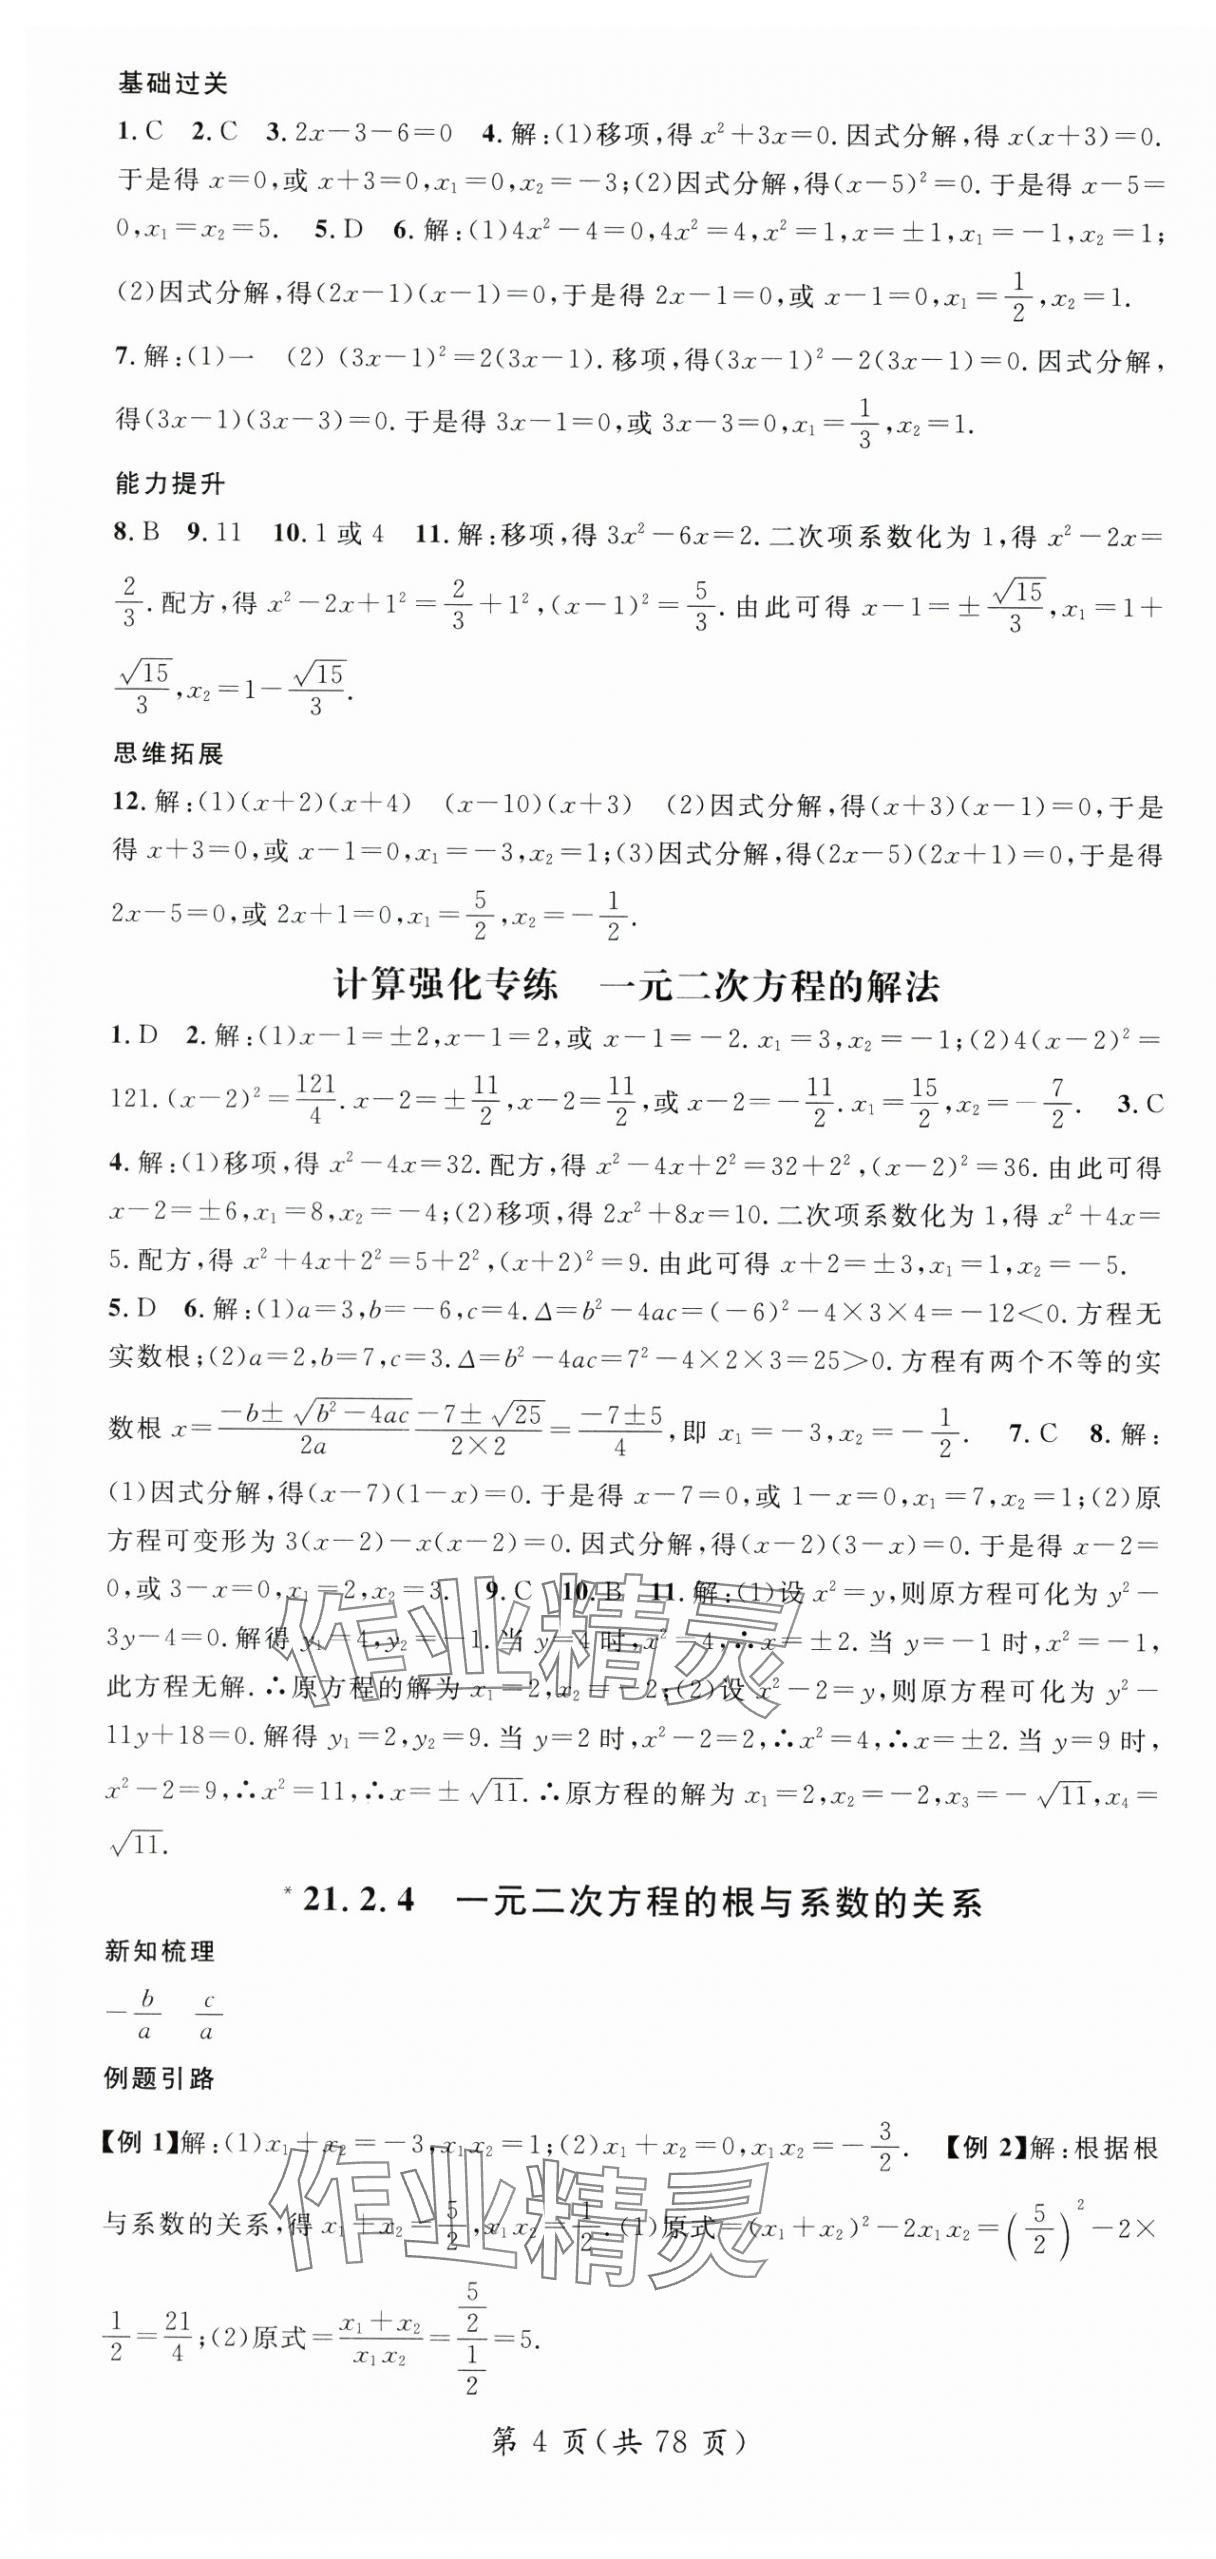 基础过关
1. C 2. C 3. 2x－3－6＝0 4. 解:(1)移项,得 x²＋3x＝0. 因式分解,得 x(x＋3)＝0.
于是得 x＝0,或 x＋3＝0,x₁＝0,x₂＝－3;(2)因式分解,得(x－5)²＝0. 于是得 x－5＝
0,x₁＝x₂＝5. 5. D 6. 解:(1)4x²－4＝0,4x²＝4,x²＝1,x＝±1,x₁＝－1,x₂＝1;
(2)因式分解,得(2x－1)(x－1)＝0,于是得 2x－1＝0,或 x－1＝0,x₁＝1/2,x₂＝1.
7. 解:(1)一 (2) (3x－1)²＝2(3x－1). 移项,得(3x－1)²－2(3x－1)＝0. 因式分解,
得(3x－1)(3x－3)＝0. 于是得 3x－1＝0,或 3x－3＝0,x₁＝1/3,x₂＝1.
能力提升
8. B 9. 11 10. 1 或 4 11. 解:移项,得 3x²－6x＝2. 二次项系数化为 1,得 x²－2x＝
2/3. 配方,得 x²－2x＋1²＝2/3＋1²,(x－1)²＝5/3. 由此可得 x－1＝±√15/3,x₁＝1＋
√15/3,x₂＝1－√15/3.
思维拓展
12. 解:(1)(x＋2)(x＋4) (x－10)(x＋3) (2)因式分解,得(x＋3)(x－1)＝0,于是
得 x＋3＝0,或 x－1＝0,x₁＝－3,x₂＝1;(3)因式分解,得(2x－5)(2x＋1)＝0,于是得
2x－5＝0,或 2x＋1＝0,x₁＝5/2,x₂＝－1/2.
计算强化专练 一元二次方程的解法
1. D 2. 解:(1)x－1＝±2,x－1＝2,或 x－1＝－2. x₁＝3,x₂＝－1;(2)4(x－2)²＝
121. (x－2)²＝121/4. x－2＝±11/2,x－2＝11/2,或 x－2＝－11/2. x₁＝15/2,x₂＝－7/2. 3. C
4. 解:(1)移项,得 x²－4x＝32. 配方,得 x²－4x＋2²＝32＋2²,(x－2)²＝36. 由此可得
x－2＝±6,x₁＝8,x₂＝－4;(2)移项,得 2x²＋8x＝10. 二次项系数化为 1,得 x²＋4x＝
5. 配方,得 x²＋4x＋2²＝5＋2²,(x＋2)²＝9. 由此可得 x＋2＝±3,x₁＝1,x₂＝－5.
5. D 6. 解:(1)a＝3,b＝－6,c＝4. Δ＝b²－4ac＝(－6)²－4×3×4＝－12<0. 方程无
实数根;(2)a＝2,b＝7,c＝3. Δ＝b²－4ac＝7²－4×2×3＝25>0. 方程有两个不等的实
数根 x＝(－b±√(b²－4ac))/2a (－7±√25)/(2×2)＝(－7±5)/4,即 x₁＝－3,x₂＝－1/2. 7. C 8. 解:
(1)因式分解,得(x－7)(1－x)＝0. 于是得 x－7＝0,或 1－x＝0,x₁＝7,x₂＝1;(2)原
方程可变形为 3(x－2)－x(x－2)＝0. 因式分解,得(x－2)(3－x)＝0. 于是得 x－2＝
0,或 3－x＝0,x₁＝2,x₂＝3. 9. C 10. B 11. 解:(1)设 x²＝y,则原方程可化为 y²－
3y－4＝0. 解得 y₁＝4,y₂＝－1. 当 y＝4 时,x²＝4,∴x＝±2. 当 y＝－1 时,x²＝－1,
此方程无解. ∴原方程的解为 x₁＝2,x₂＝－2;(2)设 x²－2＝y,则原方程可化为 y²－
11y＋18＝0. 解得 y₁＝2,y₂＝9. 当 y＝2 时,x²－2＝2,∴x²＝4,∴x＝±2. 当 y＝9 时,
x²－2＝9,∴x²＝11,∴x＝±√11. ∴原方程的解为 x₁＝2,x₂＝－2,x₃＝－√11,x₄＝
√11.
*21.2.4 一元二次方程的根与系数的关系
新知梳理
－b/a c/a
例题引路
【例 1】解:(1)x₁＋x₂＝－3,x₁x₂＝1;(2)x₁＋x₂＝0,x₁x₂＝－3/2. 【例 2】解:根据根
与系数的关系,得 x₁＋x₂＝5/2,x₁x₂＝1/2. (1)原式＝(x₁＋x₂)²－2x₁x₂＝(5/2)²－2×
1/2＝21/4;(2)原式＝(x₁＋x₂)/(x₁x₂)＝(5/2)/(1/2)＝5.
第 4 页(共 78 页)
作业精灵
作业精灵